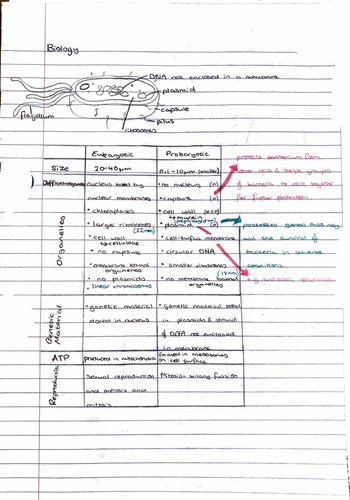 Biology
DNA not enclosed in a membrane
plasmid
capsule
pilus
flagellum
ribosomes
Eukaryotic
Prokaryotic
Size
20-40μm
0.1-10μm (smaller)
Organelles
nucleus bound by
nuclear membranes
• chloroplasts
• larger ribosomes
(22nm)
• cell wall
↳ cellulose
• no capsule
• membrane bound
organelles
• no plasmids
• linear chromosomes
• no nucleus
• capsule
• cell wall
↳ murein
(peptidoglycan)
• plasmid
• cell-surface membrane
• circular DNA
• smaller ribosomes
(18nm)
• no membrane bound
organelles
protects bacterium from
other cells & helps groups
of bacteria to stick together
for further protection
possesses genes that may
aid the survival of
bacteria in adverse
conditions.
Genetic
Material
• genetic material
stored in nucleus
• genetic material stored
in plasmids & strand
of DNA not enclosed
in membrane
ATP
produced in mitochondria
formed in mesosomes
on cell surface
Reproduction
Sexual reproduction
and meiosis and
mitosis
binary fission